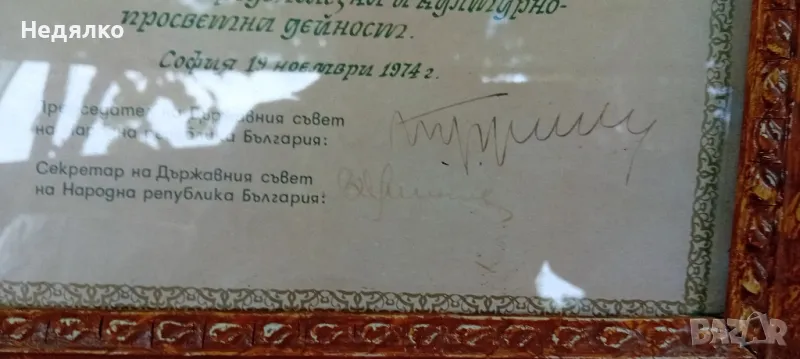 Недялко
и културно-
просветна дейност.
София 19 ноември 1974 г.
Председател на Държавния съвет
на Народна република България:
Секретар на Държавния съвет
на Народна република България:
BAZAR